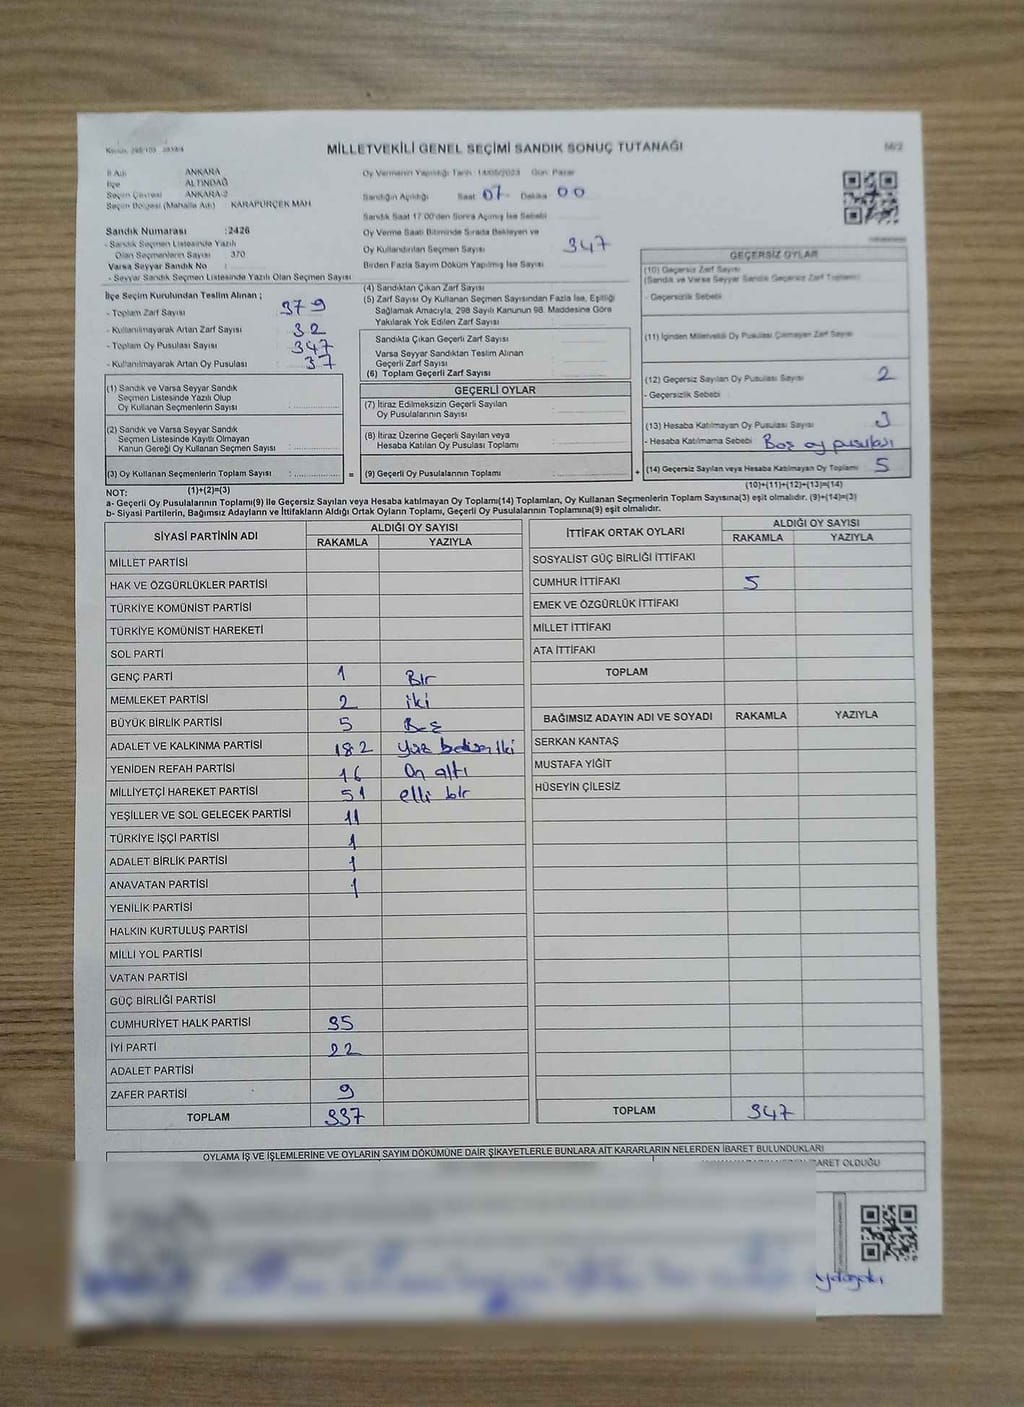 MİLLETVEKİLİ GENEL SEÇİMİ SANDIK SONUÇ TUTANAĞI
İl Adı ANKARA
İlçe ALTINDAĞ
Seçim Çevresi ANKARA-2
Seçim Bölgesi (Mahalle Adı) KARAPÜRÇEK MAH
Oy Vermenin Yapıldığı Tarih : 14/05/2023 Gün: Pazar
Sandığın Açıldığı Saat 07 Dakika 00
Sandık Saat 17:00'den Sonra Açılmış İse Sebebi
Oy Verme Saati Bitiminde Sırada Bekleyen ve
Oy Kullandırılan Seçmen Sayısı 347
Birden Fazla Sayım Döküm Yapılmış İse Sayısı
Sandık Numarası :2426
- Sandık Seçmen Listesinde Yazılı
Olan Seçmenlerin Sayısı 370
Varsa Seyyar Sandık No :
- Seyyar Sandık Seçmen Listesinde Yazılı Olan Seçmen Sayısı :
İlçe Seçim Kurulundan Teslim Alınan ;
- Toplam Zarf Sayısı 379
- Kullanılmayarak Artan Zarf Sayısı 32
- Toplam Oy Pusulası Sayısı 347
- Kullanılmayarak Artan Oy Pusulası 37
(1) Sandık ve Varsa Seyyar Sandık
Seçmen Listesinde Yazılı Olup
Oy Kullanan Seçmenlerin Sayısı :
(2) Sandık ve Varsa Seyyar Sandık
Seçmen Listesinde Kayıtlı Olmayan
Kanun Gereği Oy Kullanan Seçmen Sayısı :
(3) Oy Kullanan Seçmenlerin Toplam Sayısı :
(1)+(2)=(3)
(4) Sandıktan Çıkan Zarf Sayısı
(5) Zarf Sayısı Oy Kullanan Seçmen Sayısından Fazla İse, Eşitliği
Sağlamak Amacıyla, 298 Sayılı Kanunun 98. Maddesine Göre
Yakılarak Yok Edilen Zarf Sayısı
Sandıkta Çıkan Geçerli Zarf Sayısı
Varsa Seyyar Sandıktan Teslim Alınan
Geçerli Zarf Sayısı
(6) Toplam Geçerli Zarf Sayısı
GEÇERLİ OYLAR
(7) İtiraz Edilmeksizin Geçerli Sayılan
Oy Pusulalarının Sayısı
(8) İtiraz Üzerine Geçerli Sayılan veya
Hesaba Katılan Oy Pusulası Toplamı
= (9) Geçerli Oy Pusulalarının Toplamı
GEÇERSİZ OYLAR
(10) Geçersiz Zarf Sayısı
(Sandık ve Varsa Seyyar Sandık Geçersiz Zarf Toplamı)
- Geçersizlik Sebebi
(11) İçinden Milletvekili Oy Pusulası Çıkmayan Zarf Sayısı
(12) Geçersiz Sayılan Oy Pusulası Sayısı 2
- Geçersizlik Sebebi
(13) Hesaba Katılmayan Oy Pusulası Sayısı 3
- Hesaba Katılmama Sebebi Boş oy pusulası
+ (14) Geçersiz Sayılan veya Hesaba Katılmayan Oy Toplamı 5
(10)+(11)+(12)+(13)=(14)
NOT:
a- Geçerli Oy Pusulalarının Toplamı(9) İle Geçersiz Sayılan veya Hesaba katılmayan Oy Toplamı(14) Toplamları, Oy Kullanan Seçmenlerin Toplam Sayısına(3) eşit olmalıdır. (9)+(14)=(3)
b- Siyasi Partilerin, Bağımsız Adayların ve İttifakların Aldığı Ortak Oyların Toplamı, Geçerli Oy Pusulalarının Toplamına(9) eşit olmalıdır.
SİYASİ PARTİNİN ADI ALDIĞI OY SAYISI
RAKAMLA YAZIYLA
MİLLET PARTİSİ
HAK VE ÖZGÜRLÜKLER PARTİSİ
TÜRKİYE KOMÜNİST PARTİSİ
TÜRKİYE KOMÜNİST HAREKETİ
SOL PARTİ
GENÇ PARTİ 1 Bir
MEMLEKET PARTİSİ 2 iki
BÜYÜK BİRLİK PARTİSİ 5 Beş
ADALET VE KALKINMA PARTİSİ 182 yüz seksen iki
YENİDEN REFAH PARTİSİ 16 On altı
MİLLİYETÇİ HAREKET PARTİSİ 51 elli bir
YEŞİLLER VE SOL GELECEK PARTİSİ 11
TÜRKİYE İŞÇİ PARTİSİ 1
ADALET BİRLİK PARTİSİ 1
ANAVATAN PARTİSİ 1
YENİLİK PARTİSİ
HALKIN KURTULUŞ PARTİSİ
MİLLİ YOL PARTİSİ
VATAN PARTİSİ
GÜÇ BİRLİĞİ PARTİSİ
CUMHURİYET HALK PARTİSİ 35
İYİ PARTİ 22
ADALET PARTİSİ
ZAFER PARTİSİ 9
TOPLAM 337
İTTİFAK ORTAK OYLARI ALDIĞI OY SAYISI
RAKAMLA YAZIYLA
SOSYALİST GÜÇ BİRLİĞİ İTTİFAKI
CUMHUR İTTİFAKI 5
EMEK VE ÖZGÜRLÜK İTTİFAKI
MİLLET İTTİFAKI
ATA İTTİFAKI
TOPLAM
BAĞIMSIZ ADAYIN ADI VE SOYADI RAKAMLA YAZIYLA
SERKAN KANTAŞ
MUSTAFA YİĞİT
HÜSEYİN ÇİLESİZ
TOPLAM 347
OYLAMA İŞ VE İŞLEMLERİNE VE OYLARIN SAYIM DÖKÜMÜNE DAİR ŞİKAYETLERLE BUNLARA AİT KARARLARIN NELERDEN İBARET BULUNDUKLARI
OLDUĞU